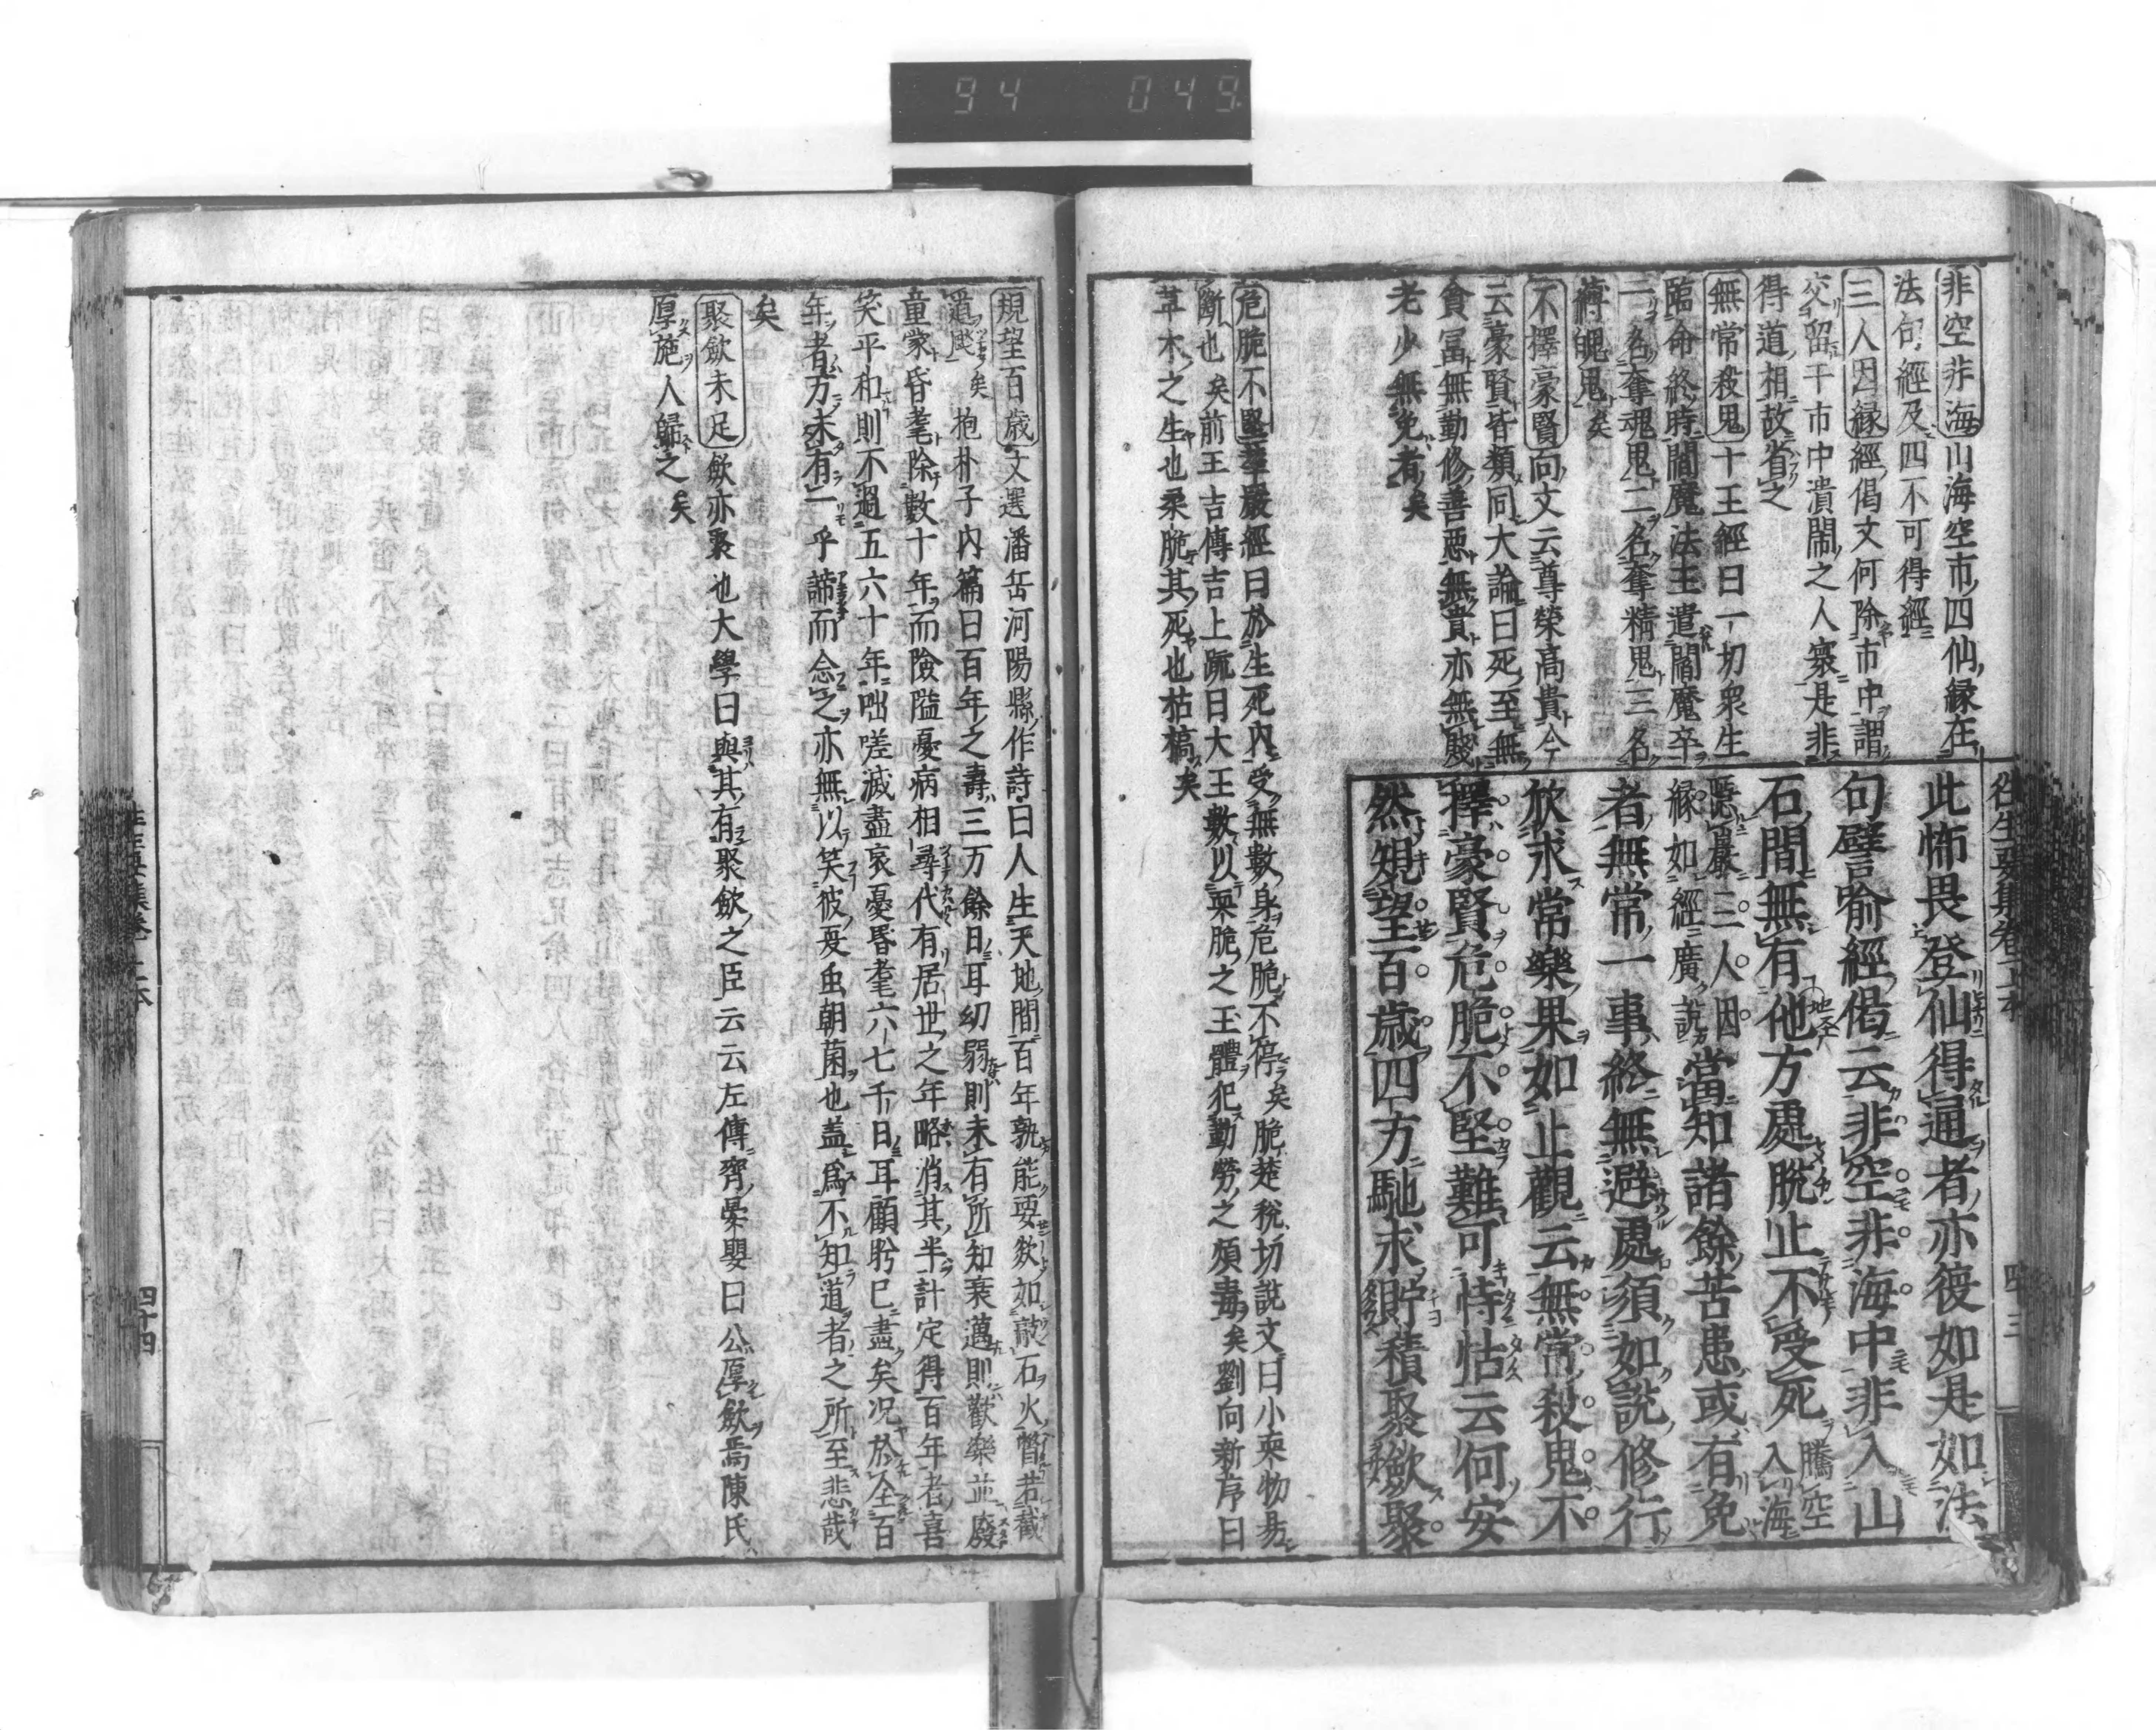 94 049
往生要集卷上本 四十三
非空非海山海空市四仙縁在
法句經及四不可得經
三人因縁經偈文何除市中謂
交留干市中潰閙之人衆是非
得道相故省之
無常殺鬼十王經曰一切衆生
臨命終時閻魔法王遣閻魔卒
一名奪魂鬼二名奪精鬼三名
縛魄鬼矣
不擇豪賢向文云尊榮高貴今
云豪賢皆類同大論曰死至無
貪富無勤修善惡無貴亦無賤
老少無免者矣
此怖畏登仙得通者亦復如是如法
句譬喻經偈云非空非海中非入山
石間無有他方處脱止不受死騰空入海
隱巖三人因縁如經廣説當知諸餘苦患或有免
者無常一事終無避處須如説修行
欣求常樂果如止觀云無常殺鬼不
擇豪賢危脆不堅難可恃怙云何安
然規望百歳四方馳求貯積聚歛聚
危脆不堅華嚴經曰於生死内受無數身危脆不停矣脆楚税切説文曰小耎物易
斷也矣前王吉傳吉上疏曰大王數以耎脆之玉體犯勤勞之煩毒矣劉向新序曰
草木之生也柔脆其死也枯槁矣
規望百歳文選潘岳河陽縣作詩曰人生天地間百年孰能要欻如敲石火瞥若截
道飈矣抱朴子内篇曰百年之壽三万餘日耳幼弱則未有所知衰邁則歡樂並廢
童蒙昏耄除數十年而險隘憂病相尋代有居世之年略消其半計定得百年者喜
笑平和則不過五六十年咄嗟滅盡哀憂昏耄六七千日耳顧眄已盡矣况於全百
年者万未有一乎諦而念之亦無以笑彼夏虫朝菌也盖爲不知道者之所至悲哉
矣
聚歛未足歛亦聚也大學曰與其有聚歛之臣云云左傳齊晏嬰曰公厚歛焉陳氏
厚施人歸之矣
往生要集卷上本 四十四